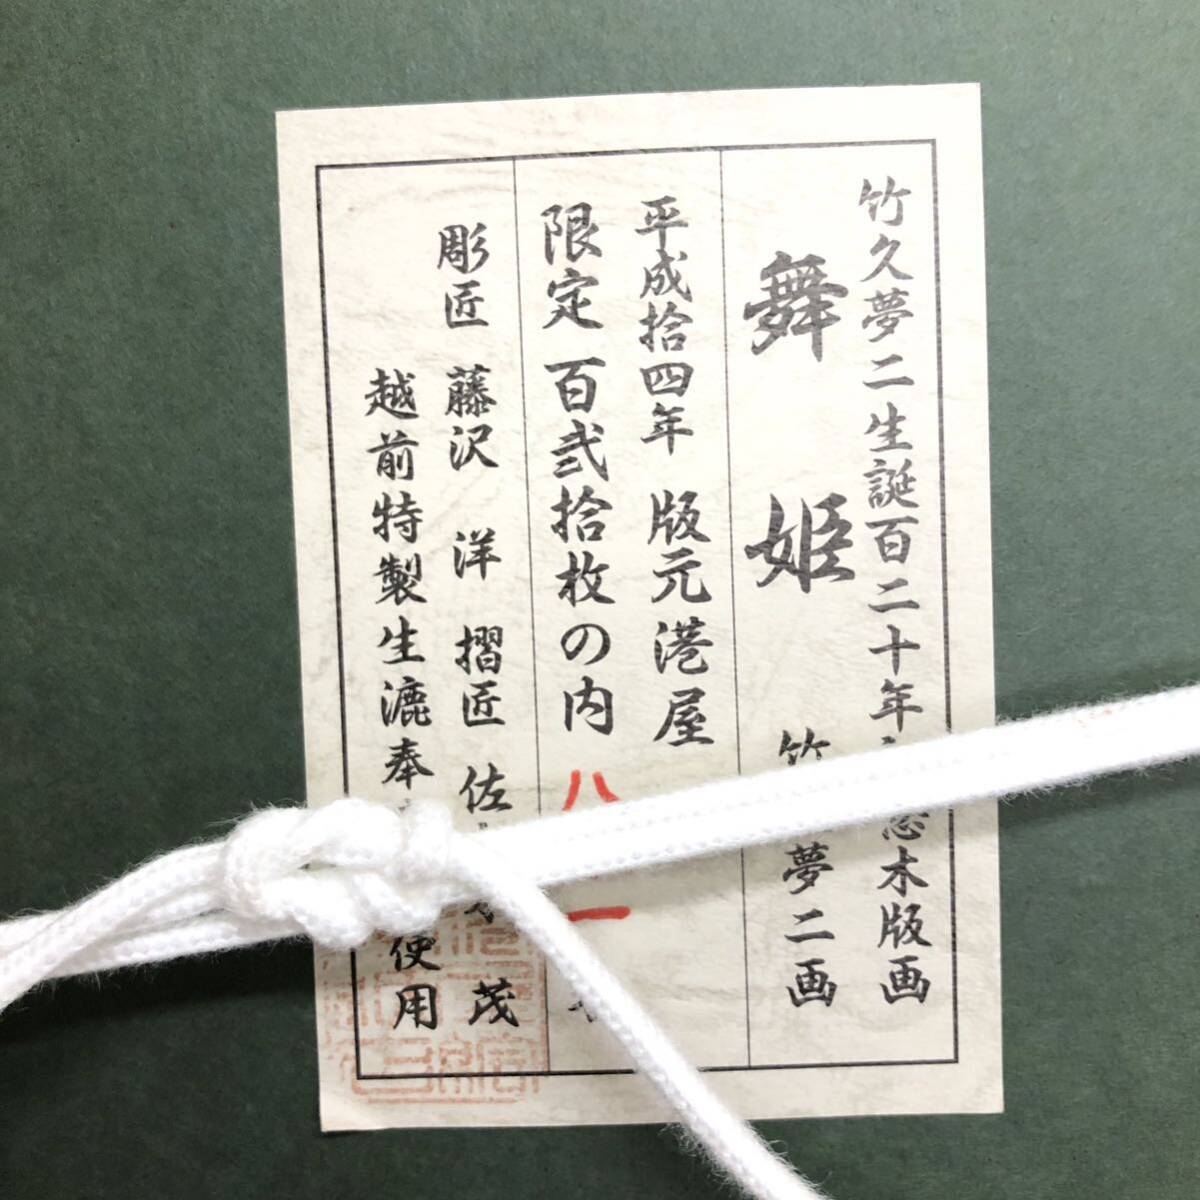 竹久夢二生誕百二十年念木版画
舞姫
竹夢二画
平成拾四年 版元港屋
限定 百弐拾枚の内 八一
彫匠 藤沢 洋 摺匠 佐茂
越前特製生漉奉使用